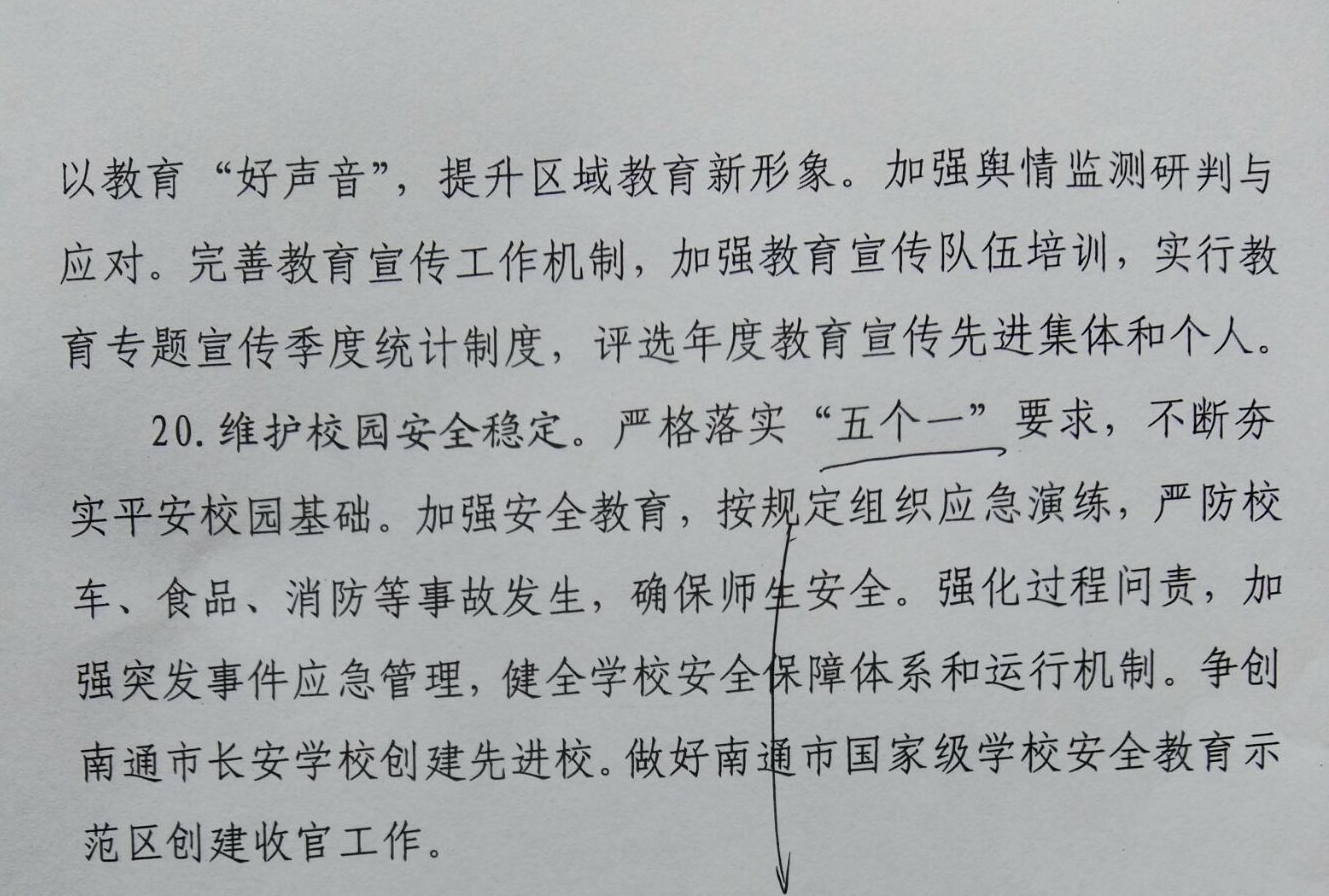 以教育“好声音”，提升区域教育新形象。加强舆情监测研判与
应对。完善教育宣传工作机制，加强教育宣传队伍培训，实行教
育专题宣传季度统计制度，评选年度教育宣传先进集体和个人。
20.维护校园安全稳定。严格落实“五个一”要求，不断夯
实平安校园基础。加强安全教育，按规定组织应急演练，严防校
车、食品、消防等事故发生，确保师生安全。强化过程问责，加
强突发事件应急管理，健全学校安全保障体系和运行机制。争创
南通市长安学校创建先进校。做好南通市国家级学校安全教育示
范区创建收官工作。